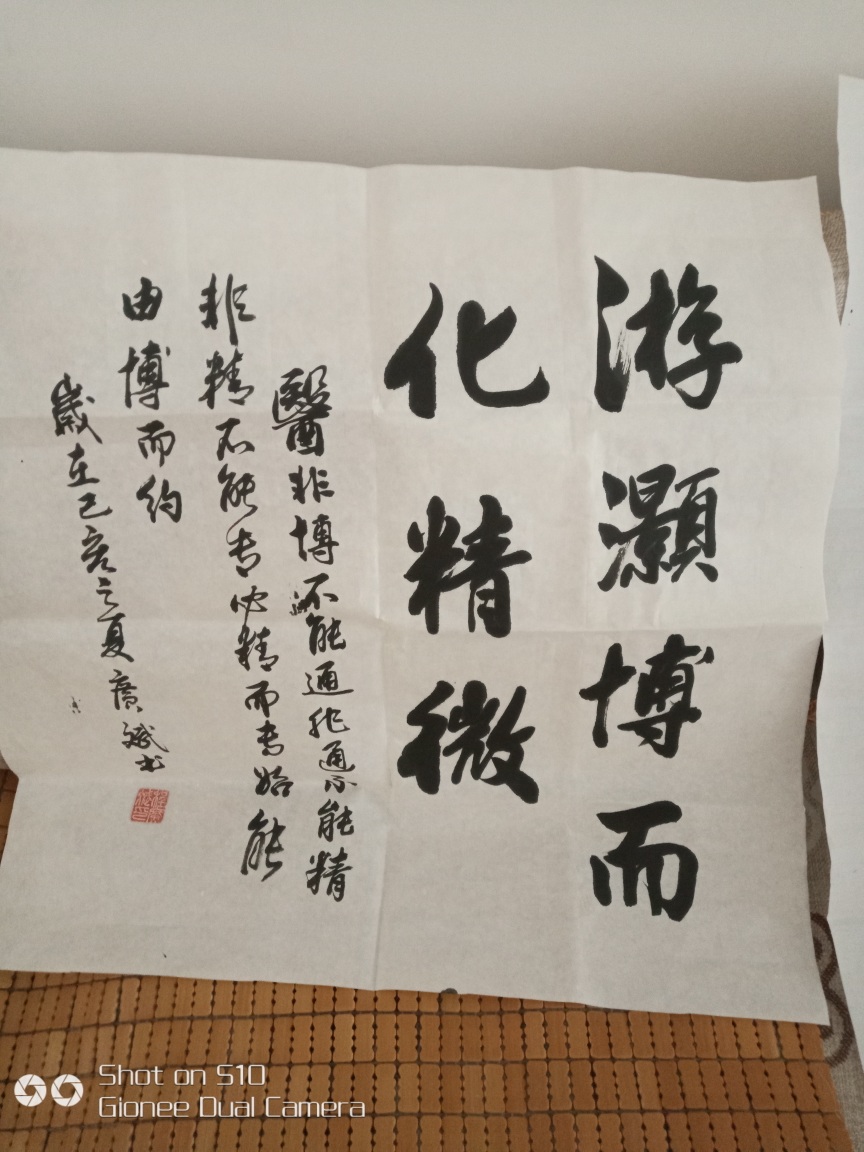 游灏博而
化精微
醫非博不能通非通不能精
非精不能专必精而专始能
由博而约
歲在己亥之夏广斌书
Shot on S10
Gionee Dual Camera